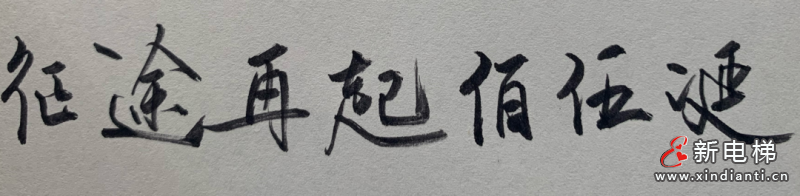 征途再起佰任
新电梯
www.xindianti.cn